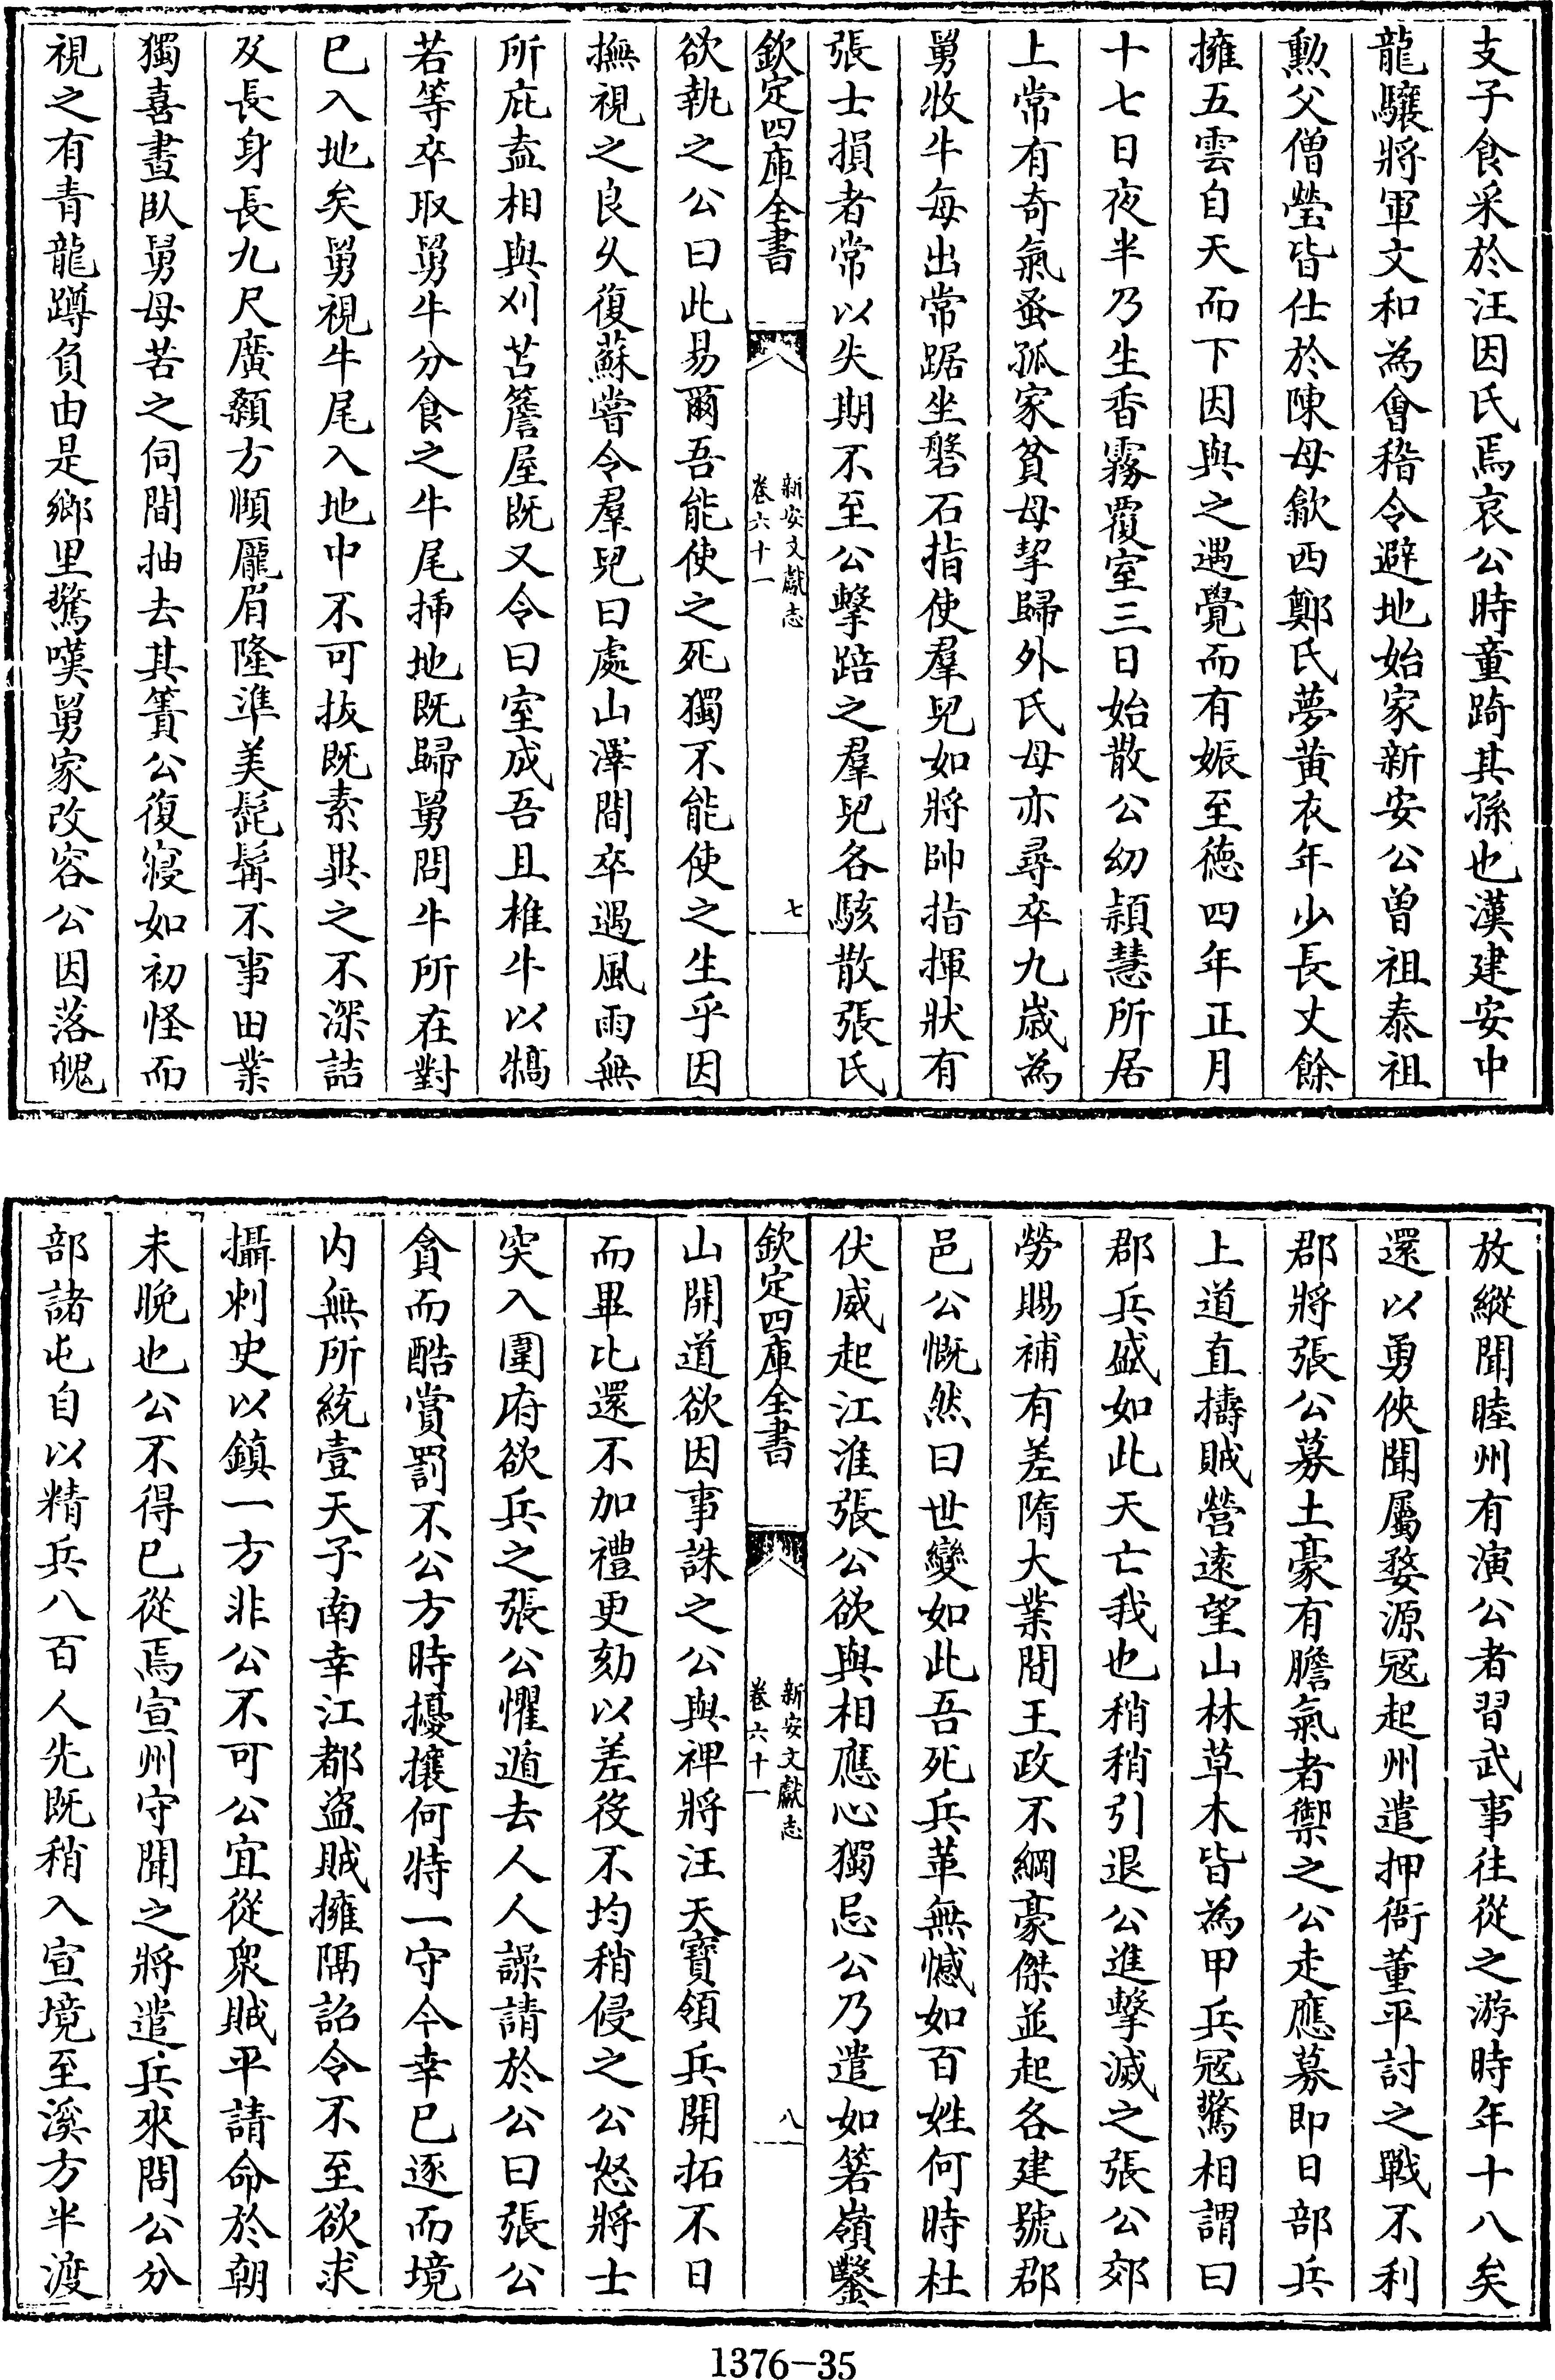 支子食采於汪因氏焉哀公時童踦其孫也漢建安中
龍驤將軍文和為會稽令避地始家新安公曾祖泰祖
勲父僧瑩皆仕於陳母歙西鄭氏夢黄衣年少長丈餘
擁五雲自天而下因與之遇覺而有娠至德四年正月
十七日夜半乃生香霧覆室三日始散公幼穎慧所居
上常有奇氣蚤孤家貧母挈歸外氏母亦尋卒九歳為
舅牧牛每出常踞坐磐石指使羣兒如將帥指揮狀有
張士損者常以失期不至公擊踣之羣兒各駭散張氏
欽定四庫全書
新安文獻志
卷六十一
七
欲執之公曰此易爾吾能使之死獨不能使之生乎因
撫視之良久復蘇嘗令羣兒曰處山澤間卒遇風雨無
所庇盍相與刈苫簷屋既又令曰室成吾且椎牛以犒
若等卒取舅牛分食之牛尾揷地既歸舅問牛所在對
已入地矣舅視牛尾入地中不可拔既素異之不深詰
及長身長九尺廣顙方頤龎眉隆準美髭髯不事田業
獨喜晝臥舅母苦之伺間抽去其簀公復寢如初怪而
視之有青龍蹲負由是鄉里驚嘆舅家改容公因落魄
放縱聞睦州有演公者習武事往從之游時年十八矣
還以勇俠聞屬婺源冦起州遣押衙董平討之戰不利
郡將張公募土豪有膽氣者禦之公走應募即日部兵
上道直擣賊營遠望山林草木皆為甲兵冦驚相謂曰
郡兵盛如此天亡我也稍稍引退公進擊滅之張公郊
勞賜補有差隋大業間王政不綱豪傑並起各建號郡
邑公慨然曰世變如此吾死兵革無憾如百姓何時杜
伏威起江淮張公欲與相應心獨忌公乃遣如箬嶺鑿
欽定四庫全書
新安文獻志
卷六十一
八
山開道欲因事誅之公與裨將汪天寶領兵開拓不日
而畢比還不加禮更劾以差役不均稍侵之公怒將士
突入圍府欲兵之張公懼遁去人人譟請於公曰張公
貪而酷賞罰不公方時擾攘何恃一守今幸已逐而境
内無所統壹天子南幸江都盗賊擁隔詔令不至欲求
攝刺史以鎮一方非公不可公宜從衆賊平請命於朝
未晚也公不得已從焉宣州守聞之將遣兵來問公分
部諸屯自以精兵八百人先既稍入宣境至溪方半渡
1376-35